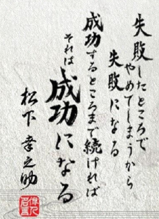 失敗したところで
やめてしまうから
失敗になる
成功するところまで続ければ
それは成功になる
松下幸之助